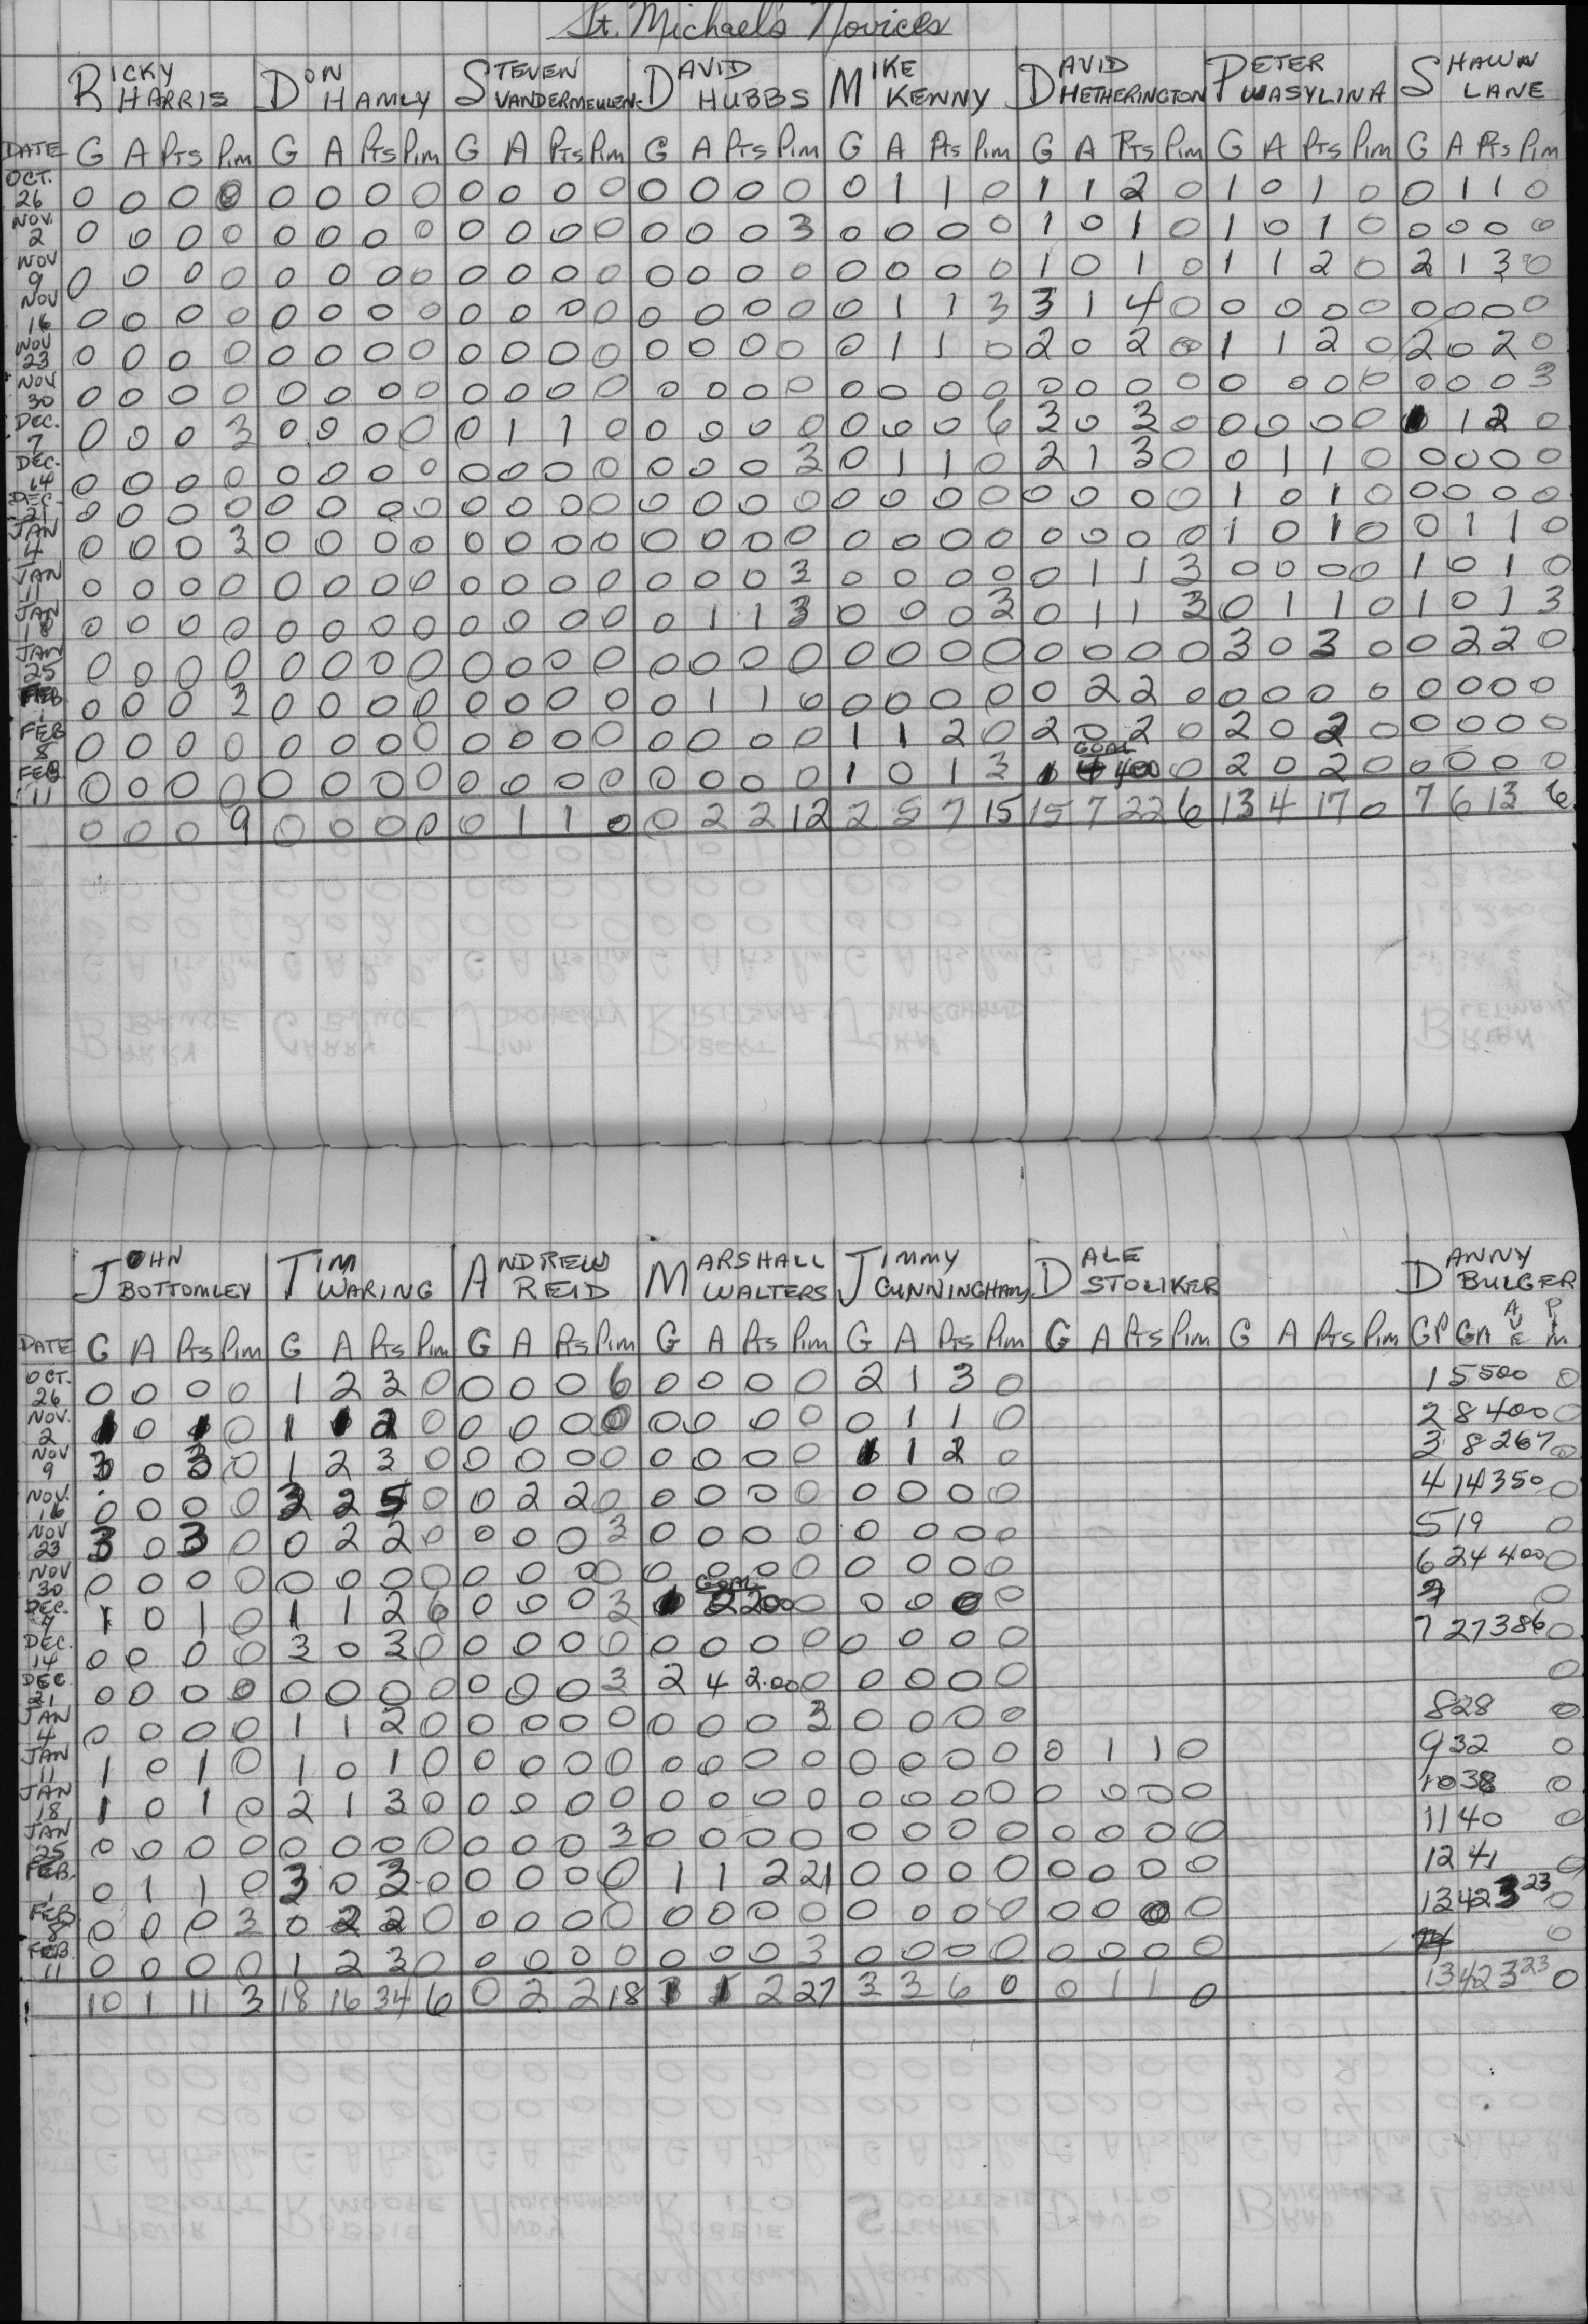 St. Michael's Novices
RICKY HARRIS DON HAMLY STEVEN VANDERMEULEN DAVID HUBBS MIKE KENNY DAVID HETHERINGTON PETER WASYLINA SHAWN LANE
DATE G A Pts Pim G A Pts Pim G A Pts Pim G A Pts Pim G A Pts Pim G A Pts Pim G A Pts Pim G A Pts Pim
OCT. 26 0 0 0 0 0 0 0 0 0 0 0 0 0 0 0 0 0 1 1 0 1 1 2 0 1 0 1 0 0 1 1 0
NOV. 2 0 0 0 0 0 0 0 0 0 0 0 0 0 0 0 3 0 0 0 0 1 0 1 0 1 0 1 0 0 0 0 0
NOV 9 0 0 0 0 0 0 0 0 0 0 0 0 0 0 0 0 0 0 0 0 1 0 1 0 1 1 2 0 2 1 3 0
NOV 16 0 0 0 0 0 0 0 0 0 0 0 0 0 0 0 0 0 1 1 3 3 1 4 0 0 0 0 0 0 0 0 0
NOV 23 0 0 0 0 0 0 0 0 0 0 0 0 0 0 0 0 0 1 1 0 2 0 2 0 1 1 2 0 2 0 2 0
NOV 30 0 0 0 0 0 0 0 0 0 0 0 0 0 0 0 0 0 0 0 0 0 0 0 0 0 0 0 0 0 0 0 3
DEC. 7 0 0 0 3 0 0 0 0 0 1 1 0 0 0 0 0 0 0 0 6 3 0 3 0 0 0 0 0 1 1 2 0
DEC. 14 0 0 0 0 0 0 0 0 0 0 0 0 0 0 0 3 0 1 1 0 2 1 3 0 0 1 1 0 0 0 0 0
DEC. 21 0 0 0 0 0 0 0 0 0 0 0 0 0 0 0 0 0 0 0 0 0 0 0 0 1 0 1 0 0 0 0 0
JAN 4 0 0 0 3 0 0 0 0 0 0 0 0 0 0 0 0 0 0 0 0 0 0 0 0 1 0 1 0 0 1 1 0
JAN 11 0 0 0 0 0 0 0 0 0 0 0 0 0 0 0 3 0 0 0 0 0 1 1 3 0 0 0 0 1 0 1 0
JAN 18 0 0 0 0 0 0 0 0 0 0 0 0 0 1 1 3 0 0 0 3 0 1 1 3 0 1 1 0 1 0 1 3
JAN 25 0 0 0 0 0 0 0 0 0 0 0 0 0 0 0 0 0 0 0 0 0 0 0 0 3 0 3 0 0 2 2 0
FEB 1 0 0 0 3 0 0 0 0 0 0 0 0 0 1 1 0 0 0 0 0 0 2 2 0 0 0 0 0 0 0 0 0
FEB 8 0 0 0 0 0 0 0 0 0 0 0 0 0 0 0 0 1 1 2 0 2 0 2 0 2 0 2 0 0 0 0 0
FEB 11 0 0 0 0 0 0 0 0 0 0 0 0 0 0 0 0 1 0 1 3 1 4 400 0 2 0 2 0 0 0 0 0
0 0 0 9 0 0 0 0 0 1 1 0 0 2 2 12 2 5 7 15 15 7 22 6 13 4 17 0 7 6 13 6
JOHN BOTTOMLEY TIM WARING ANDREW REID MARSHALL WALTERS JIMMY CUNNINGHAM DALE STOLIKER DANNY BULGER
DATE G A Pts Pim G A Pts Pim G A Pts Pim G A Pts Pim G A Pts Pim G A Pts Pim G A Pts Pim GP GA AVE PIM
OCT. 26 0 0 0 0 1 2 3 0 0 0 0 6 0 0 0 0 2 1 3 0 1 5 500 0
NOV. 2 1 0 1 0 1 1 2 0 0 0 0 0 0 0 0 0 0 1 1 0 2 8 400 0
NOV 9 3 0 3 0 1 2 3 0 0 0 0 0 0 0 0 0 1 1 2 0 3 8 267 0
NOV. 16 0 0 0 0 3 2 5 0 0 2 2 0 0 0 0 0 0 0 0 0 4 14 350 0
NOV 23 3 0 3 0 0 2 2 0 0 0 0 3 0 0 0 0 0 0 0 0 5 19 0
NOV 30 0 0 0 0 0 0 0 0 0 0 0 0 0 0 0 0 0 0 0 0 6 24 400 0
DEC. 7 1 0 1 0 1 1 2 6 0 0 0 3 1 2 200 0 0 0 0 0 0
DEC. 14 0 0 0 0 3 0 3 0 0 0 0 0 0 0 0 0 0 0 0 0 7 27 386 0
DEC 21 0 0 0 0 0 0 0 0 0 0 0 3 2 4 2.00 0 0 0 0 0 0
JAN 4 0 0 0 0 1 1 2 0 0 0 0 0 0 0 0 3 0 0 0 0 8 28 0
JAN 11 1 0 1 0 1 0 1 0 0 0 0 0 0 0 0 0 0 0 0 0 0 1 1 0 9 32 0
JAN 18 1 0 1 0 2 1 3 0 0 0 0 0 0 0 0 0 0 0 0 0 0 0 0 0 10 38 0
JAN 25 0 0 0 0 0 0 0 0 0 0 0 3 0 0 0 0 0 0 0 0 0 0 0 0 11 40 0
FEB. 1 0 1 1 0 3 0 3 0 0 0 0 0 1 1 2 21 0 0 0 0 0 0 0 0 12 41 0
FEB 8 0 0 0 3 0 2 2 0 0 0 0 0 0 0 0 0 0 0 0 0 0 0 0 0 13 42 323 0
FEB. 11 0 0 0 0 1 2 3 0 0 0 0 0 0 0 0 3 0 0 0 0 0 0 0 0 0
10 1 11 3 18 16 34 6 0 2 2 18 1 1 2 27 3 3 6 0 0 1 1 0 13 42 323 0